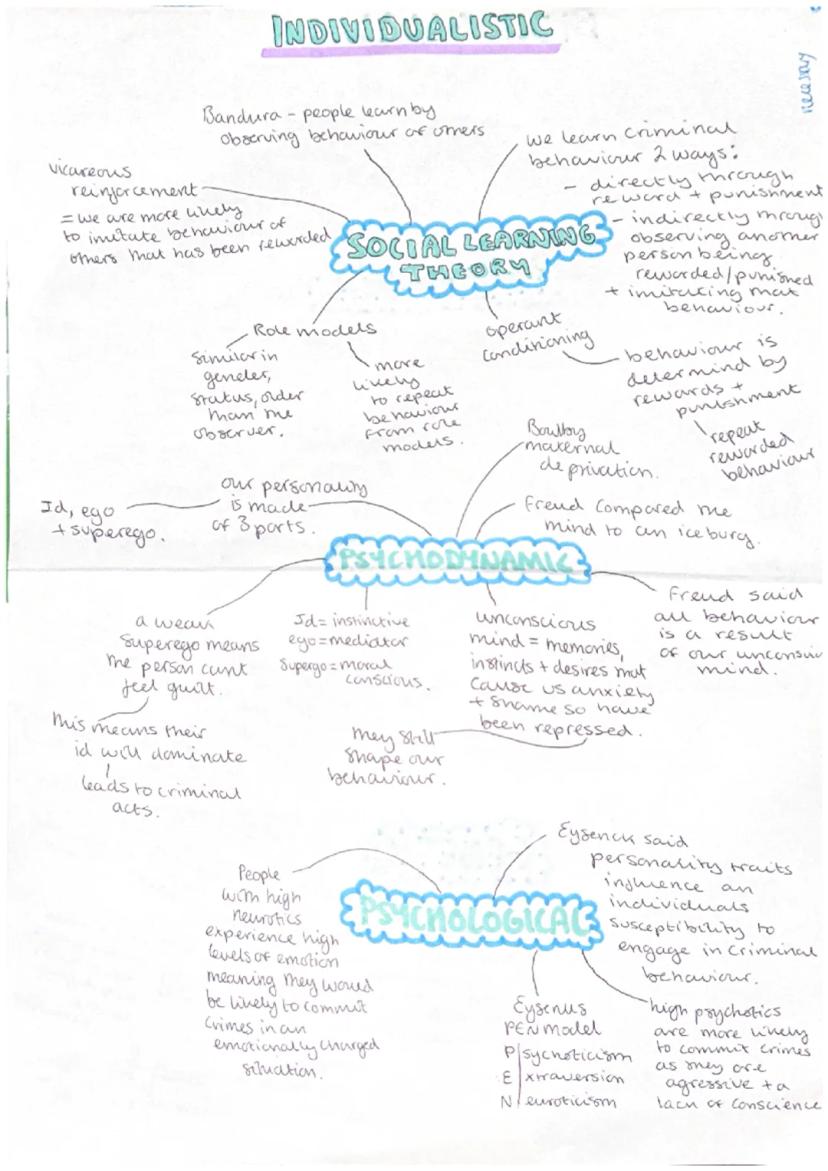 INDIVIDUALISTIC
necessary
Bandura - people learn by
observing behaviour of others
we learn criminal
behaviour 2 ways:
- directly through
reward + punishment
- indirectly throug
observing another
person being
rewarded/punished
+ imitating that
behaviour.
vicareous
reinforcement
= we are more likely
to imitate behaviour of
others that has been rewarded
SOCIAL LEARNING
THEORY
Role models
similar in
gender,
status, older
than the
observer.
more
likely
to repeat
behaviour
from role
models.
operant
conditioning
behaviour is
determind by
rewards +
punishment
repeat
rewarded
behaviour
Bowlby
maternal
deprivation.
our personality
is made
of 3 parts.
Id, ego
+ superego.
Freud compared the
mind to an iceburg.
PSYCHODYNAMIC
Freud said
all behaviour
is a result
of our unconsciou
mind.
a weak
superego means
the person cant
feel guilt.
this means their
id will dominate
leads to criminal
acts.
Id = instinctive
ego = mediator
supergo = moral
conscious.
unconscious
mind = memories,
instincts + desires that
cause us anxiety
+ shame so have
been repressed.
they still
shape our
behaviour.
Eysenck said
personality traits
influence an
individuals
susceptibility to
engage in criminal
behaviour.
People
with high
neurotics
experience high
levels of emotion
meaning they would
be likely to commit
crimes in an
emotionally charged
situation.
PSYCHOLOGICAL
PEN model
Psychoticism
Extraversion
Neuroticism
high psychotics
are more likely
to commit crimes
as they are
agressive + a
lack of conscience